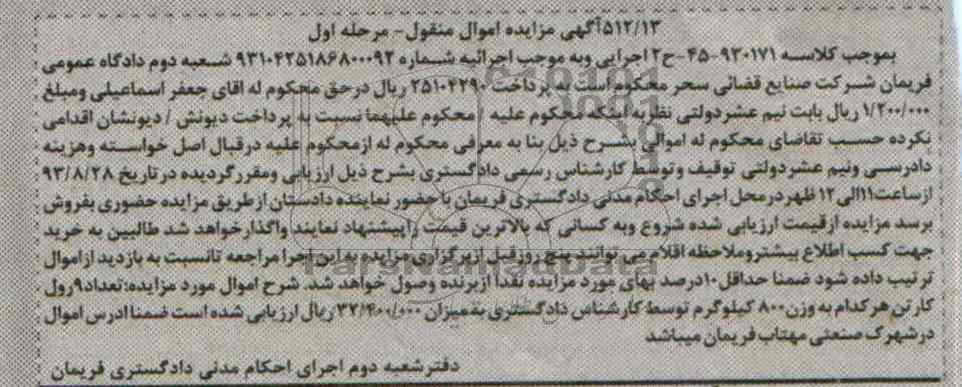 ۵۱۲/۱۳آگهی مزایده اموال منقول- مرحله اول
بموجب کلاسه ۹۳۰۱۷۱-۴۵-ح۲ اجرایی وبه موجب اجرائیه شماره ۹۳۱۰۴۲۵۱۸۶۸۰۰۰۹۲ شعبه دوم دادگاه عمومی
فریمان شرکت صنایع فضائی سحر محکوم است به پرداخت ۲۵۱۰۴۲۹۰ ریال درحق محکوم له اقای جعفر اسماعیلی ومبلغ
۱/۲۰۰/۰۰۰ ریال بابت نیم عشردولتی نظربه اینکه محکوم علیه / محکوم علیهما نسبت به پرداخت دیونش / دیونشان اقدامی
نکرده حسب تقاضای محکوم له اموالی بشرح ذیل بنا به معرفی محکوم له ازمحکوم علیه درقبال اصل خواسته وهزینه
دادرسی ونیم عشردولتی توقیف وتوسط کارشناس رسمی دادگستری بشرح ذیل ارزیابی ومقررگردیده در تاریخ ۹۳/۸/۲۸
ازساعت۱۱الی ۱۲ ظهردرمحل اجرای احکام مدنی دادگستری فریمان با حضور نماینده دادستان ازطریق مزایده حضوری بفروش
برسد مزایده ازقیمت ارزیابی شده شروع وبه کسانی که بالاترین قیمت راپیشنهاد نمایند واگذارخواهد شد طالبین به خرید
جهت کسب اطلاع بیشتروملاحظه اقلام می توانند پنج روزقبل ازبرگزاری مزایده به این اجرا مراجعه تانسبت به بازدید ازاموال
ترتیب داده شود ضمنا حداقل ۱۰درصد بهای مورد مزایده نقدا ازبرنده وصول خواهد شد. شرح اموال مورد مزایده:تعداد۹رول
کارتن هرکدام به وزن ۸۰۰ کیلوگرم توسط کارشناس دادگستری به میزان ۳۲/۴۰۰/۰۰۰ریال ارزیابی شده است ضمنا ادرس اموال
درشهرک صنعتی مهتاب فریمان میباشد
دفترشعبه دوم اجرای احکام مدنی دادگستری فریمان
ParsNamadData